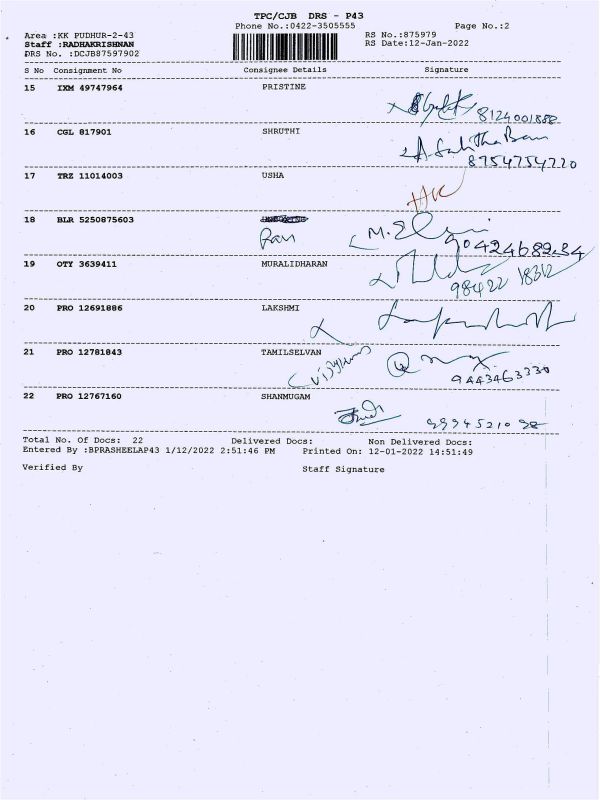 TPC/CJB DRS - P43
Phone No.:0422-3505555 Page No.:2
Area :KK PUDHUR-2-43 RS No.:875979
Staff :RADHAKRISHNAN RS Date:12-Jan-2022
DRS No. :DCJB87597902
S No Consignment No Consignee Details Signature
15 IXM 49747964 PRISTINE
8124001888
16 CGL 817901 SHRUTHI
8754754770
17 TRZ 11014003 USHA
18 BLR 5250875603
Ravi
9042468934
19 OTY 3639411 MURALIDHARAN
98422 18312
20 PRO 12691886 LAKSHMI
21 PRO 12781843 TAMILSELVAN
9443463330
22 PRO 12767160 SHANMUGAM
9994521098
Total No. Of Docs: 22 Delivered Docs: Non Delivered Docs:
Entered By :BPRASHEELAP43 1/12/2022 2:51:46 PM Printed On: 12-01-2022 14:51:49
Verified By Staff Signature